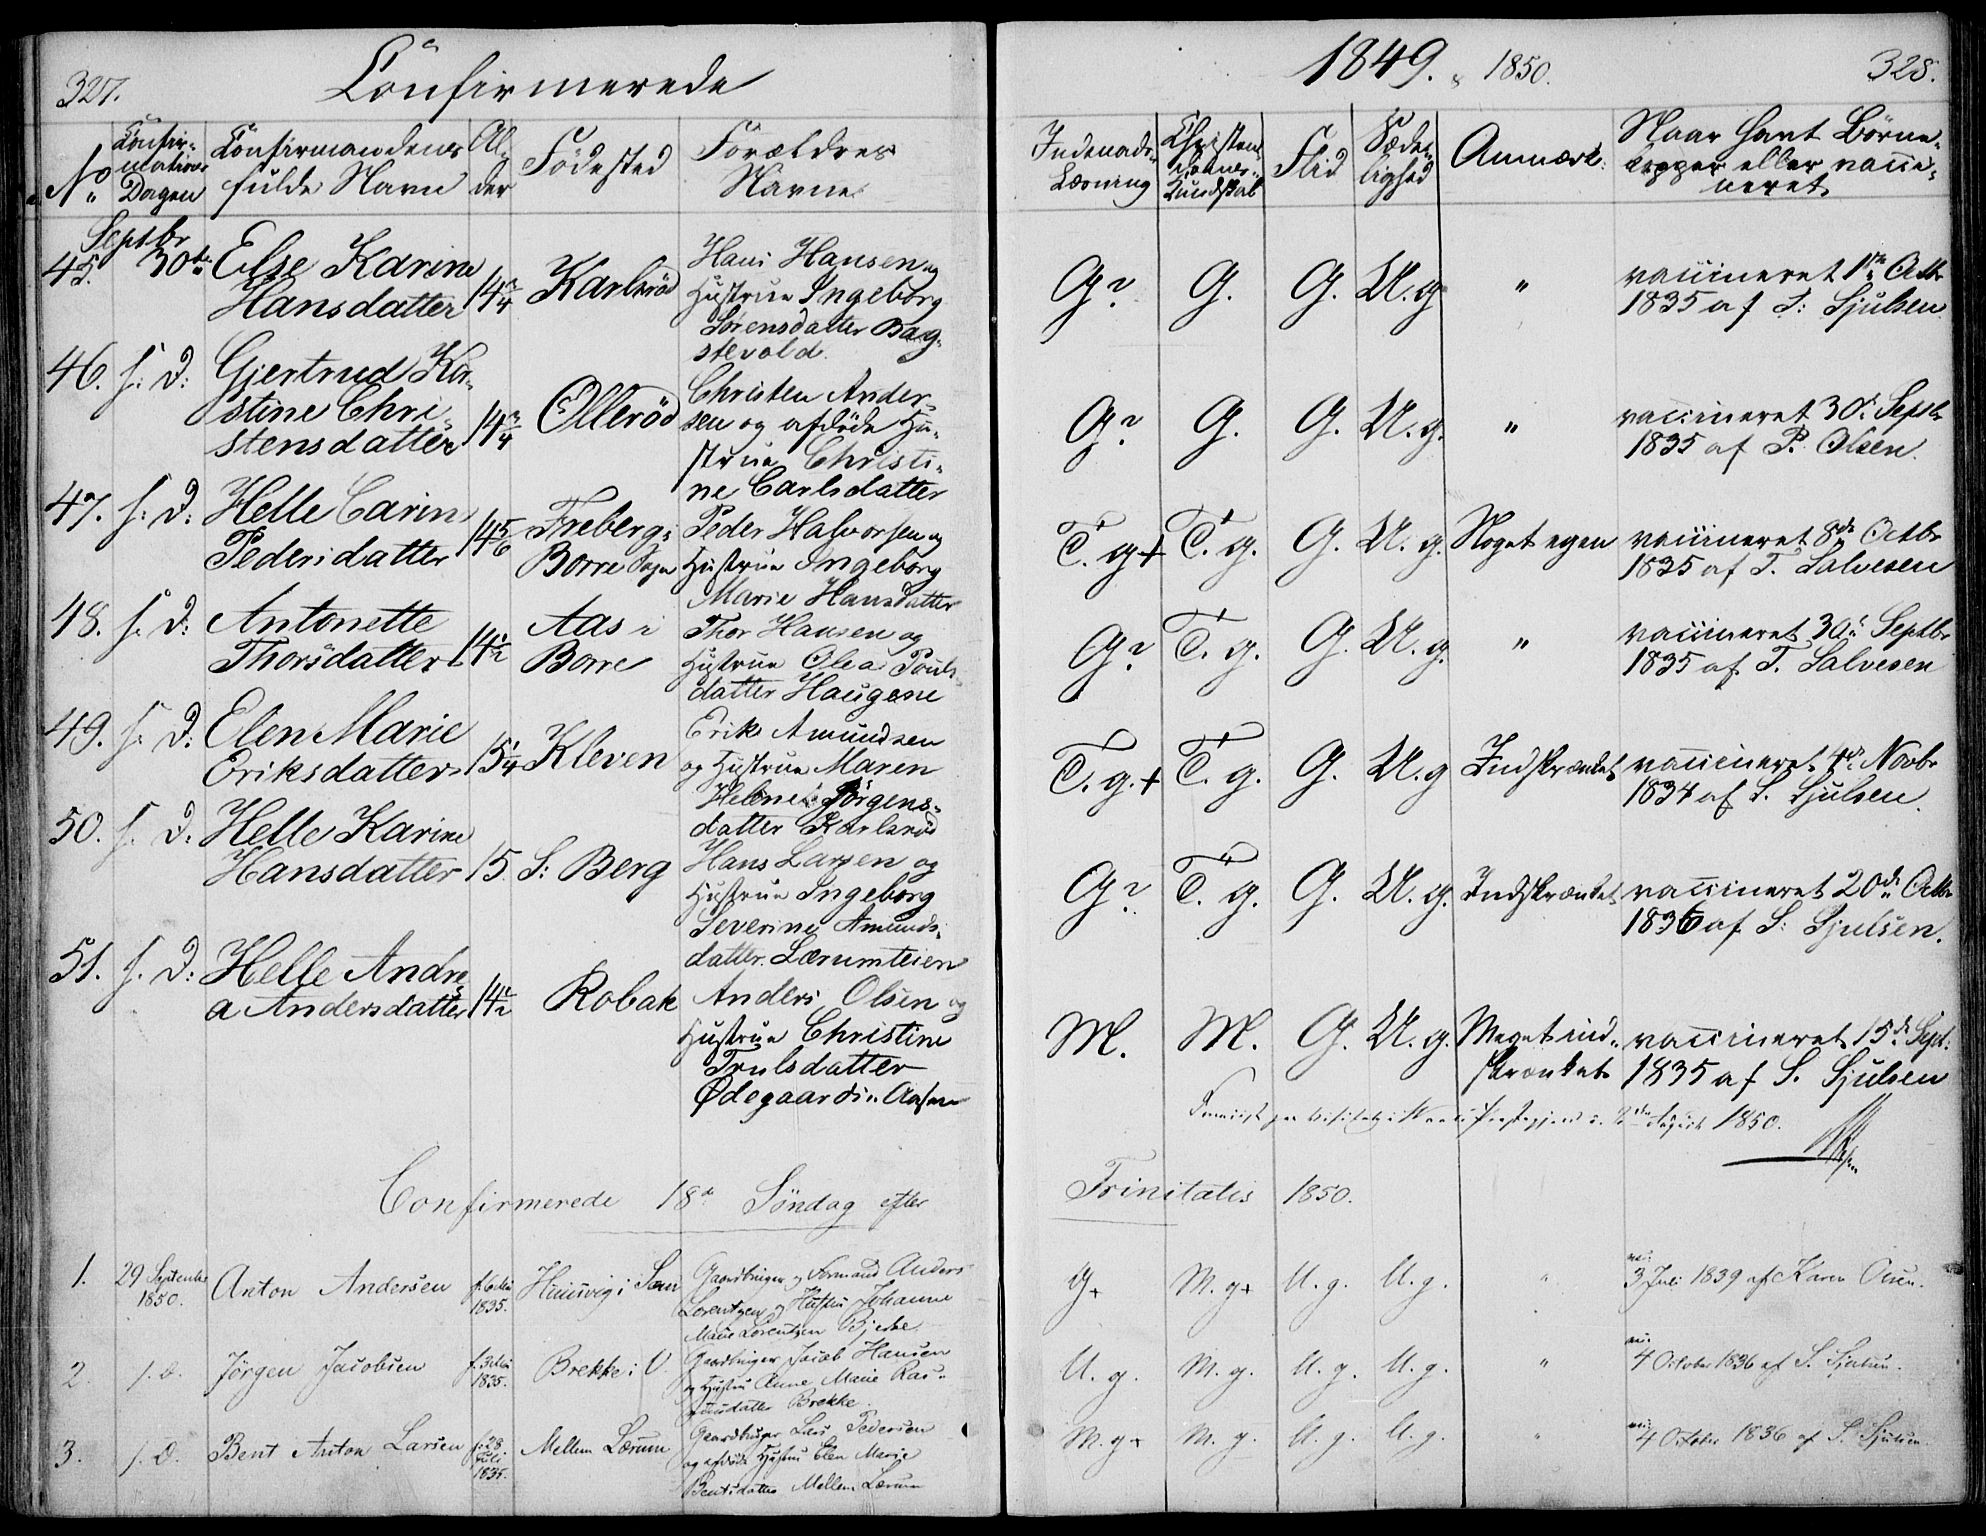 327.
Confirmerede
1849. & 1850.
328.
No
Confir-
mations
Dagen
Confirmandens
fulde Navn
Al-
der
Fødested
Forældres
Navne
Indenads-
Læsning
Christen-
doms-
Kundskab
Flid
Sæde-
lighed
Anmærk:
Naar havt Børne-
kopper eller vacci-
neret
Septbr
45. 30te Else Karine
Hansdatter
14 3/4
Karlsrød
Hans Hansen og
Hustrue Ingeborg
Sørensdatter Bag-
stevold.
G? G. G. U. g. "
vaccineret 1te Octbr
1835 af S: Sjulsen
46. s: D: Gjertrud Kir-
stine Chri-
stensdatter
14 3/4
Ollerød
Christen Ander-
sen og afdøde Hu-
strue Christi-
ne Carlsdatter
G? G. G. U. g. "
vaccineret 30. Septbr
1835 af P. Olsen.
47. s: D: Helle Carine
Pedersdatter
14 5/6
Freberg i
Borre Sogn
Peder Halvorsen og
Hustrue Ingeborg
Marie Hansdatter
T. g+ T. g. G. U. g. Noget egen
vaccineret 8de Octbr
1835 af T. Salvesen
48. s. D: Antonette
Thorsdatter
14 1/2
Aas i
Borre
Thor Hansen og
Hustrue Olea Pouls-
datter Haugene
G? T. g. G. U. g. "
vaccineret 30. Septbr
1835 af T. Salvesen
49. s. D: Elen Marie
Eriksdatter
15 1/4
Kleven
Erik Amundsen
og Hustrue Maren
Helene Jørgens-
datter Karlsrød
T. g.+ T. g. G. U. g Indskrænket
vaccineret 4de Novbr
1834 af S. Sjulsen.
50. s. D: Helle Karine
Hansdatter
15.
S: Berg
Hans Larsen og
Hustrue Ingeborg
Severine Amunds-
datter Lærumteien
G? T. g. G. U. g. Indskrænket
vaccineret 20de Octbr
1836 af S: Sjulsen.
51. s. D: Helle Andre-
a Andersdatter
14 1/2
Robak
Anders Olsen og
Hustrue Christine
Trulsdatter
Ødegaard i Aasen
M. M. G. U. g. Meget ind-
skrænket
vaccineret 15de Sept.
1835 af S. Sjulsen
August 1850.
Confirmerede 18de Søndag efter
Trinitatis 1850.
1. 29 September
1850.
Anton Andersen
f. 6 Mai
1835.
i Sem
Gaardbruger og Formand Anders
Lorentzen og Hustru Johanne
Marie Lorentzen Bjerke
G+ M. g+ U. g. U. g. "
vac:
3 Juli 1839 af Karen
2. s. D. Jørgen Jacobsen
f. 3 Mai
1835.
Brekke i V.
Gaardbruger Jacob Hansen
og Hustru Anne Marie Ras-
musdatter Brekke
U. g. M. g. U. g. U. g. "
vac:
4 October 1836 af S. Sjulsen.
3. s. D. Bent Anton Larsen
f. 28
Juli
1835.
Mellem Lærum
Gaardbruger Lars Pedersen
og afdøde Hustru Elen Marie
Bentsdatter Mellem Lærum
M. g+ M. g. U. g. U. g. "
vac:
4 October 1836 af S. Sjulsen.